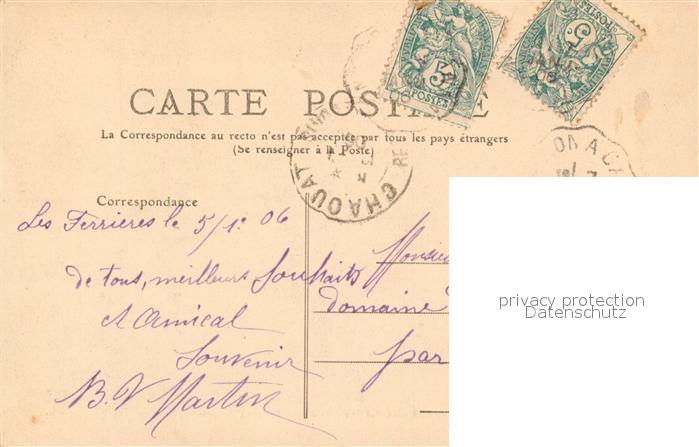 CARTE POSTALE
La Correspondance au recto n'est pas acceptée par tous les pays étrangers
(Se renseigner à la Poste)
CHAOUAT
ON A
5
POSTES
5
POSTES
Correspondance
Les Ferrieres le 5/1º 06
de tous, meilleurs souhaits
et amical
souvenir
B. V Martin
Monsieur
domaine
par
privacy protection
Datenschutz